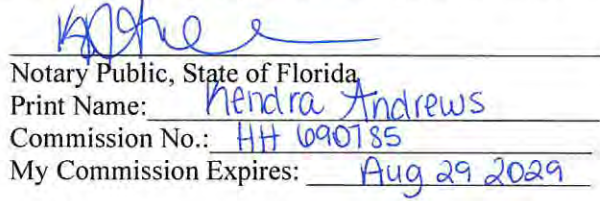 Notary Public, State of Florida
Print Name: Kendra Andrews
Commission No.: HH 690785
My Commission Expires: Aug 29 2029